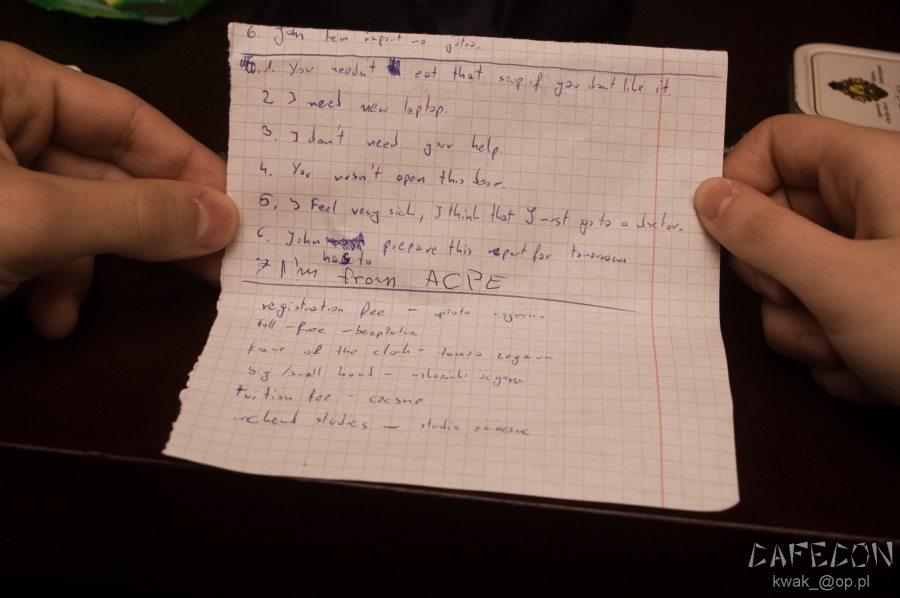 6. John ten raport na jutro.
1. You needn't eat that soup if you don't like it.
2 I need new laptop.
3. I don't need your help.
4. You musn't open this door.
5. I Feel very sick, I think that I must go to a doctor.
6. John has to prepare this report for tomorrow
7 I'm from ACPE
registration fee – opłata
toll-free – bezpłatne
face of the clock – tarcza zegara
big/small hand – wskazówki zegara
tuition fee – czesne
studies – studia zaoczne
CAFECON
kwak_@op.pl